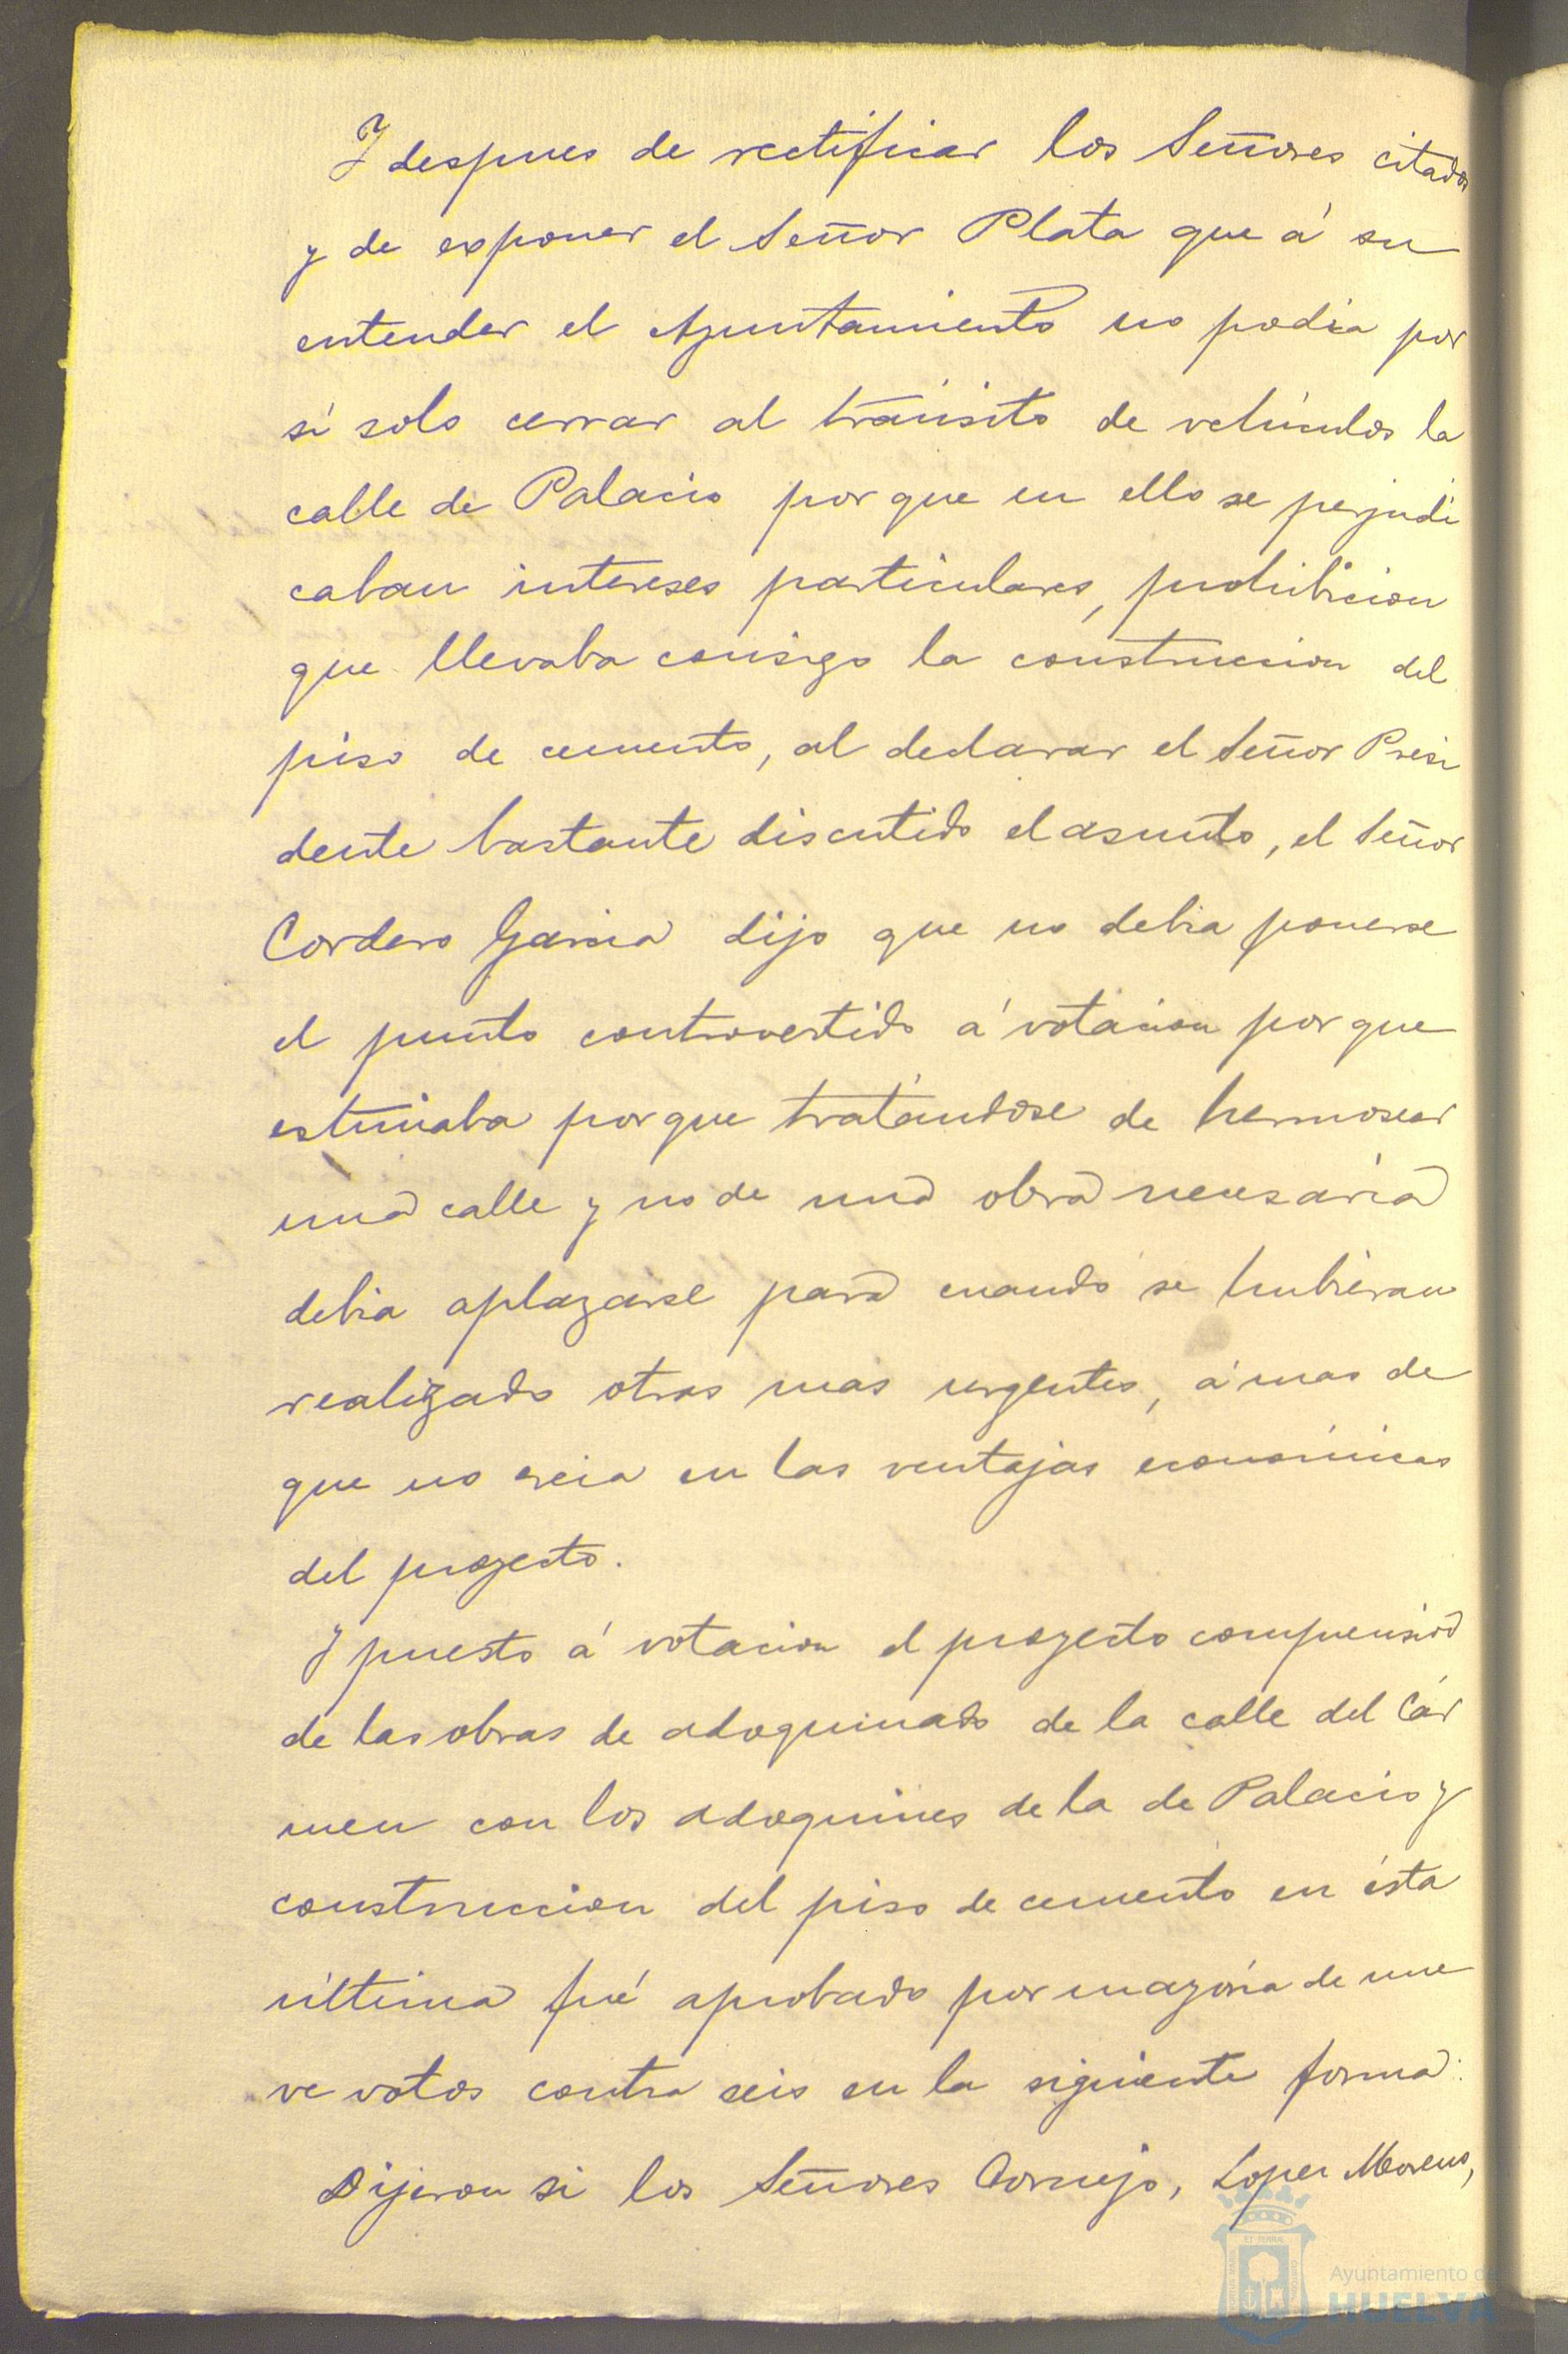 Y despues de rectificar los Señores citados
y de exponer el Señor Plata que á su
entender el Ayuntamiento no podia por
si solo cerrar al tránsito de vehículos la
calle de Palacio por que en ello se perjudi
caban intereses particulares, prohibicion
que llevaba consigo la construccion del
piso de cemento, al declarar el Señor Presi
dente bastante discutido el asunto, el Señor
Cordero Garcia dijo que no debia ponerse
el punto controvertido á votacion por que
estimaba por que tratándose de hermosear
una calle y no de una obra necesaria
debia aplazarse para cuando se hubieran
realizado otras mas urgentes, á mas de
que no creia en las ventajas económicas
del proyecto.
Y puesto á votacion el proyecto comprensivo
de las obras de adoquinado de la calle del Cár
men con los adoquines de la de Palacio y
construccion del piso de cemento en ésta
última fué aprobado por mayoria de nue
ve votos contra seis en la siguiente forma:
Dijeron si los Señores Cornejo, Lopez Moreno,
Ayuntamiento de
HUELVA